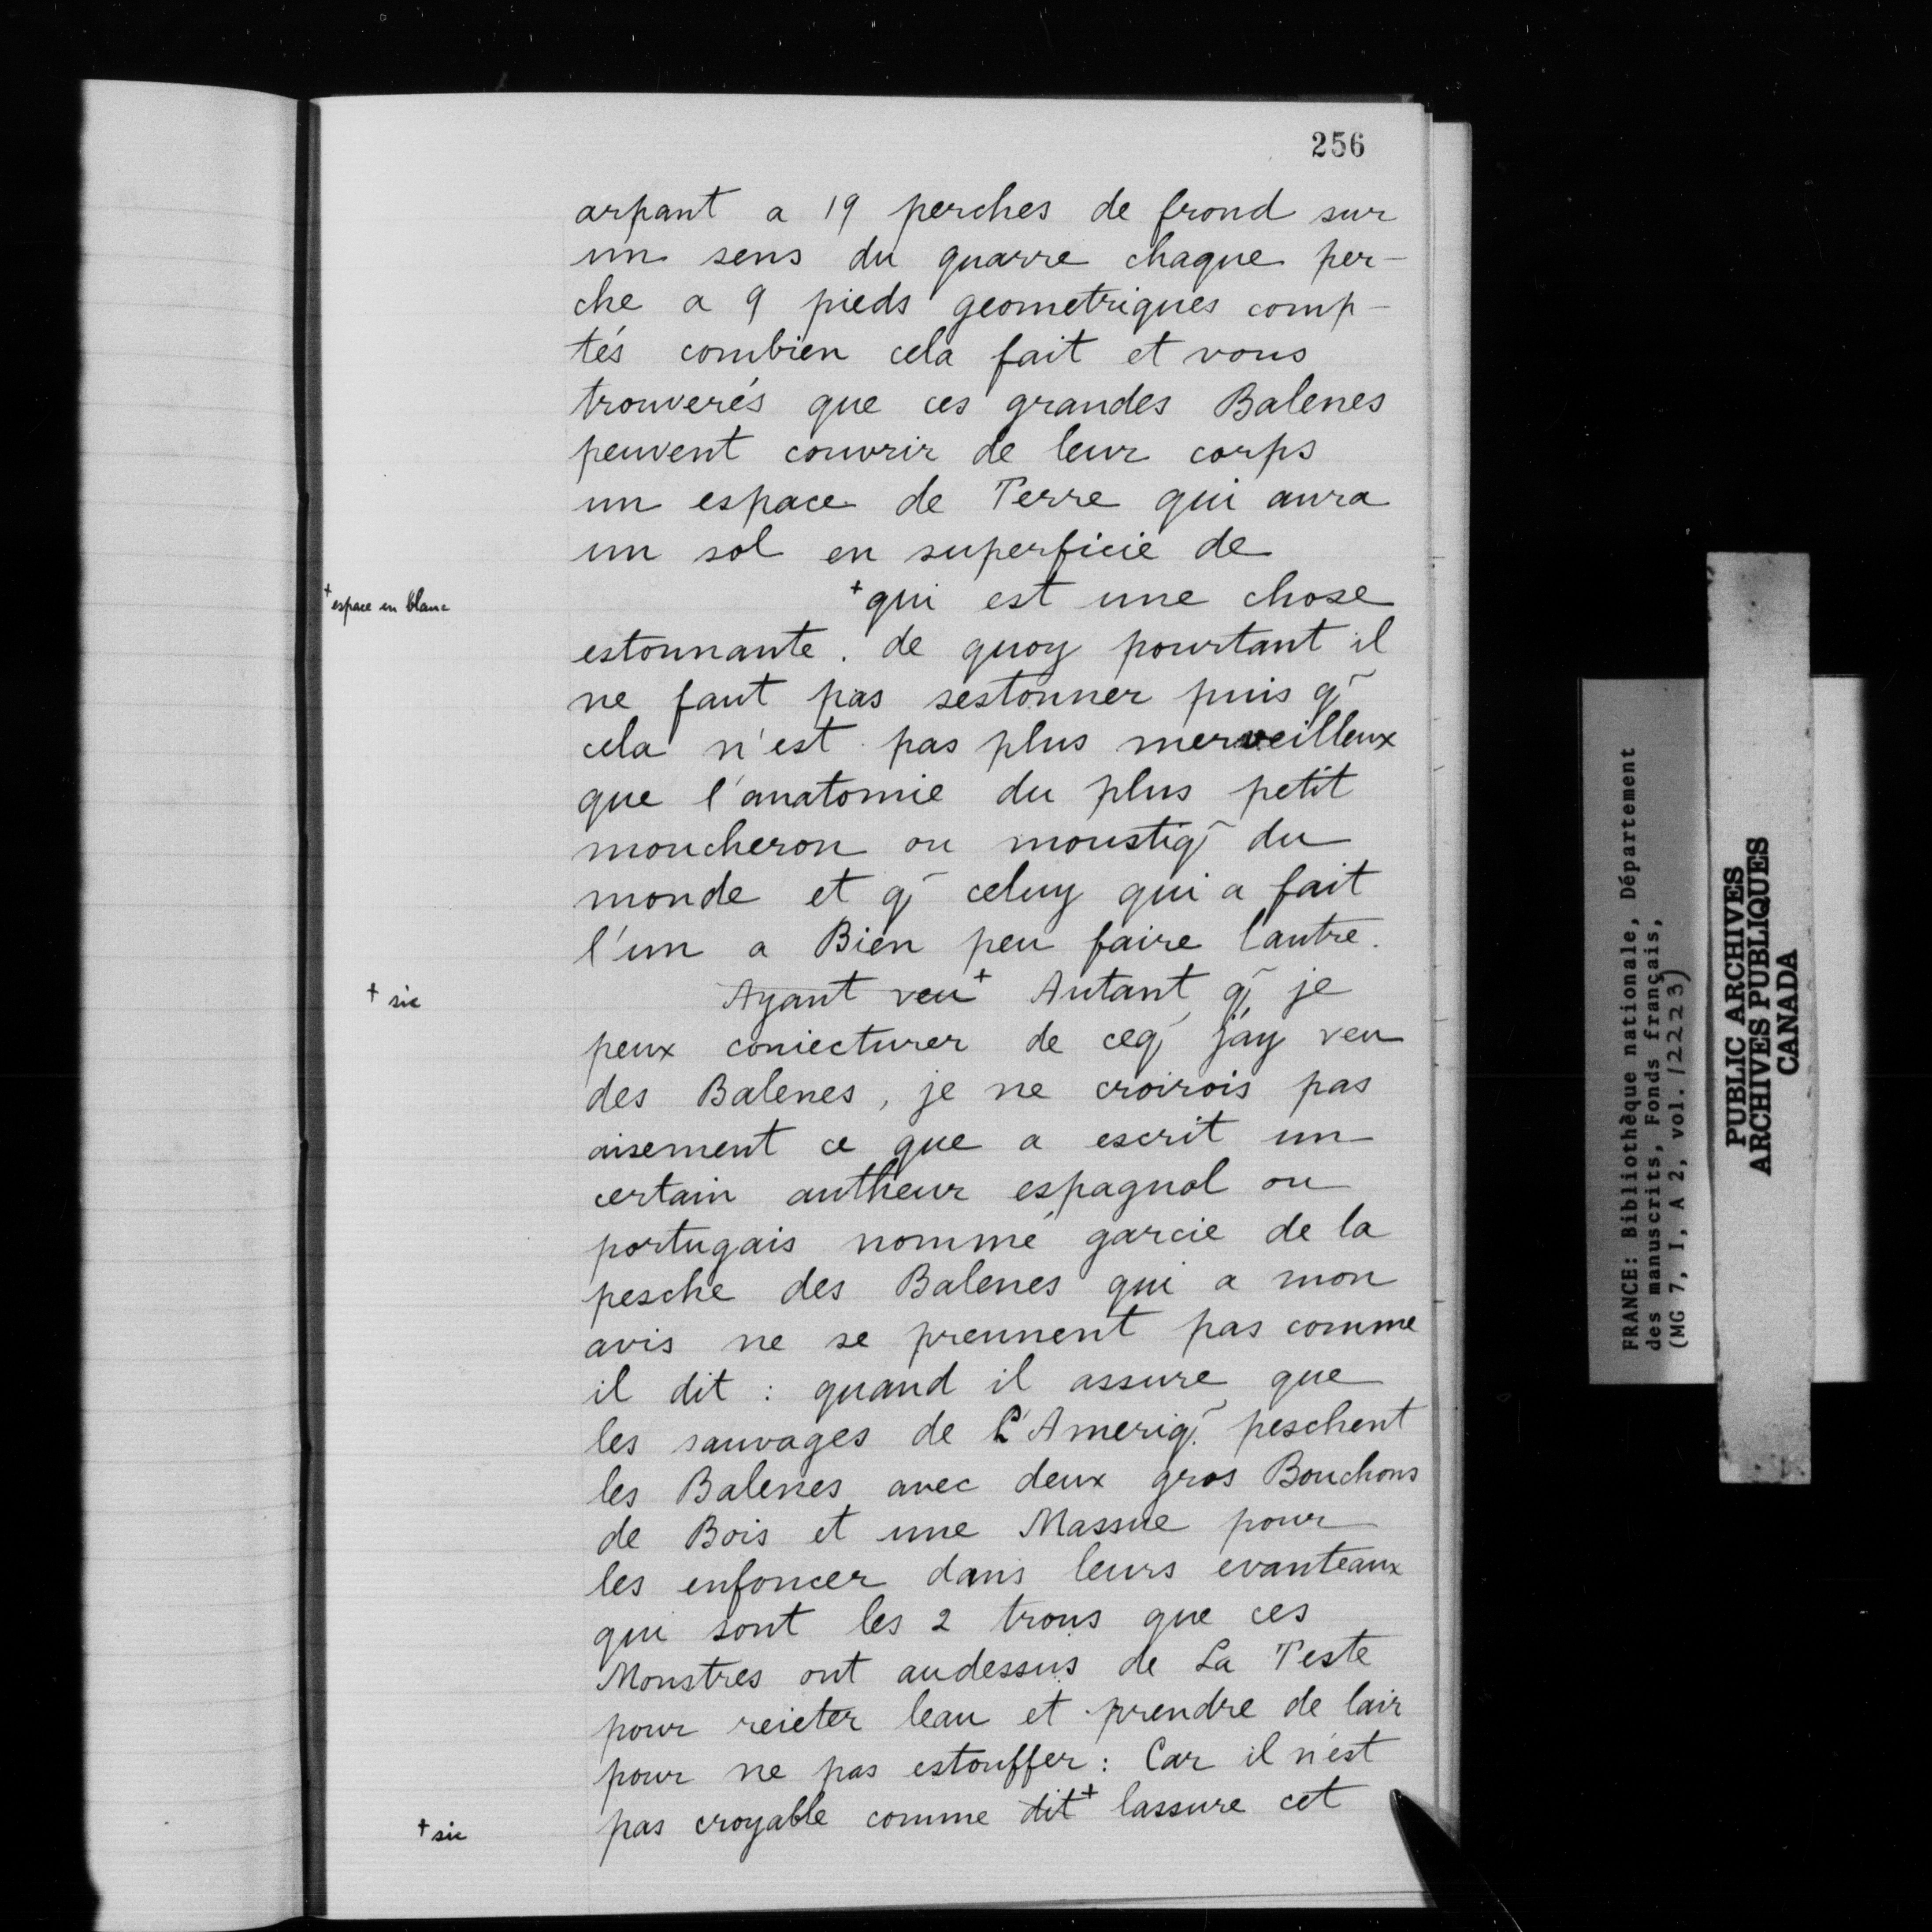 256
arpant a 19 perches de frond sur
un sens du quarre chaque per-
che a 9 pieds geometriques comp-
tés combien cela fait et vous
trouverés que ces grandes Balenes
peuvent couvrir de leur corps
un espace de Terre qui aura
un sol en superficie de
+ espace en blanc
+qui est une chose
estonnante. de quoy pourtant il
ne faut pas sestonner puis q̃
cela n'est pas plus merveilleux
que l'anatomie du plus petit
moucheron ou moustiq̃ du
monde et q̃ celuy qui a fait
l'un a Bien peu faire lautre.
+ sic
Ayant veu+ Autant q̃ je
peux coniecturer de ceq̃ j'ay veu
des Balenes, je ne croirois pas
aisement ce que a escrit un
certain autheur espagnol ou
portugais nommé garcie de la
pesche des Balenes qui a mon
avis ne se prennent pas comme
il dit : quand il assure que
les sauvages de L'Ameriq̃ peschent
les Balenes avec deux gros Bouchons
de Bois et une Massue pour
les enfoncer dans leurs evanteaux
qui sont les 2 trous que ces
Monstres ont audessus de La Teste
pour reieter leau et prendre de lair
pour ne pas estouffer : Car il n'est
pas croyable comme dit+ lassure cet
+ sic
FRANCE: Bibliothèque nationale, Département
des manuscrits, Fonds français,
(MG 7, I, A 2, vol. 12223)
PUBLIC ARCHIVES
ARCHIVES PUBLIQUES
CANADA